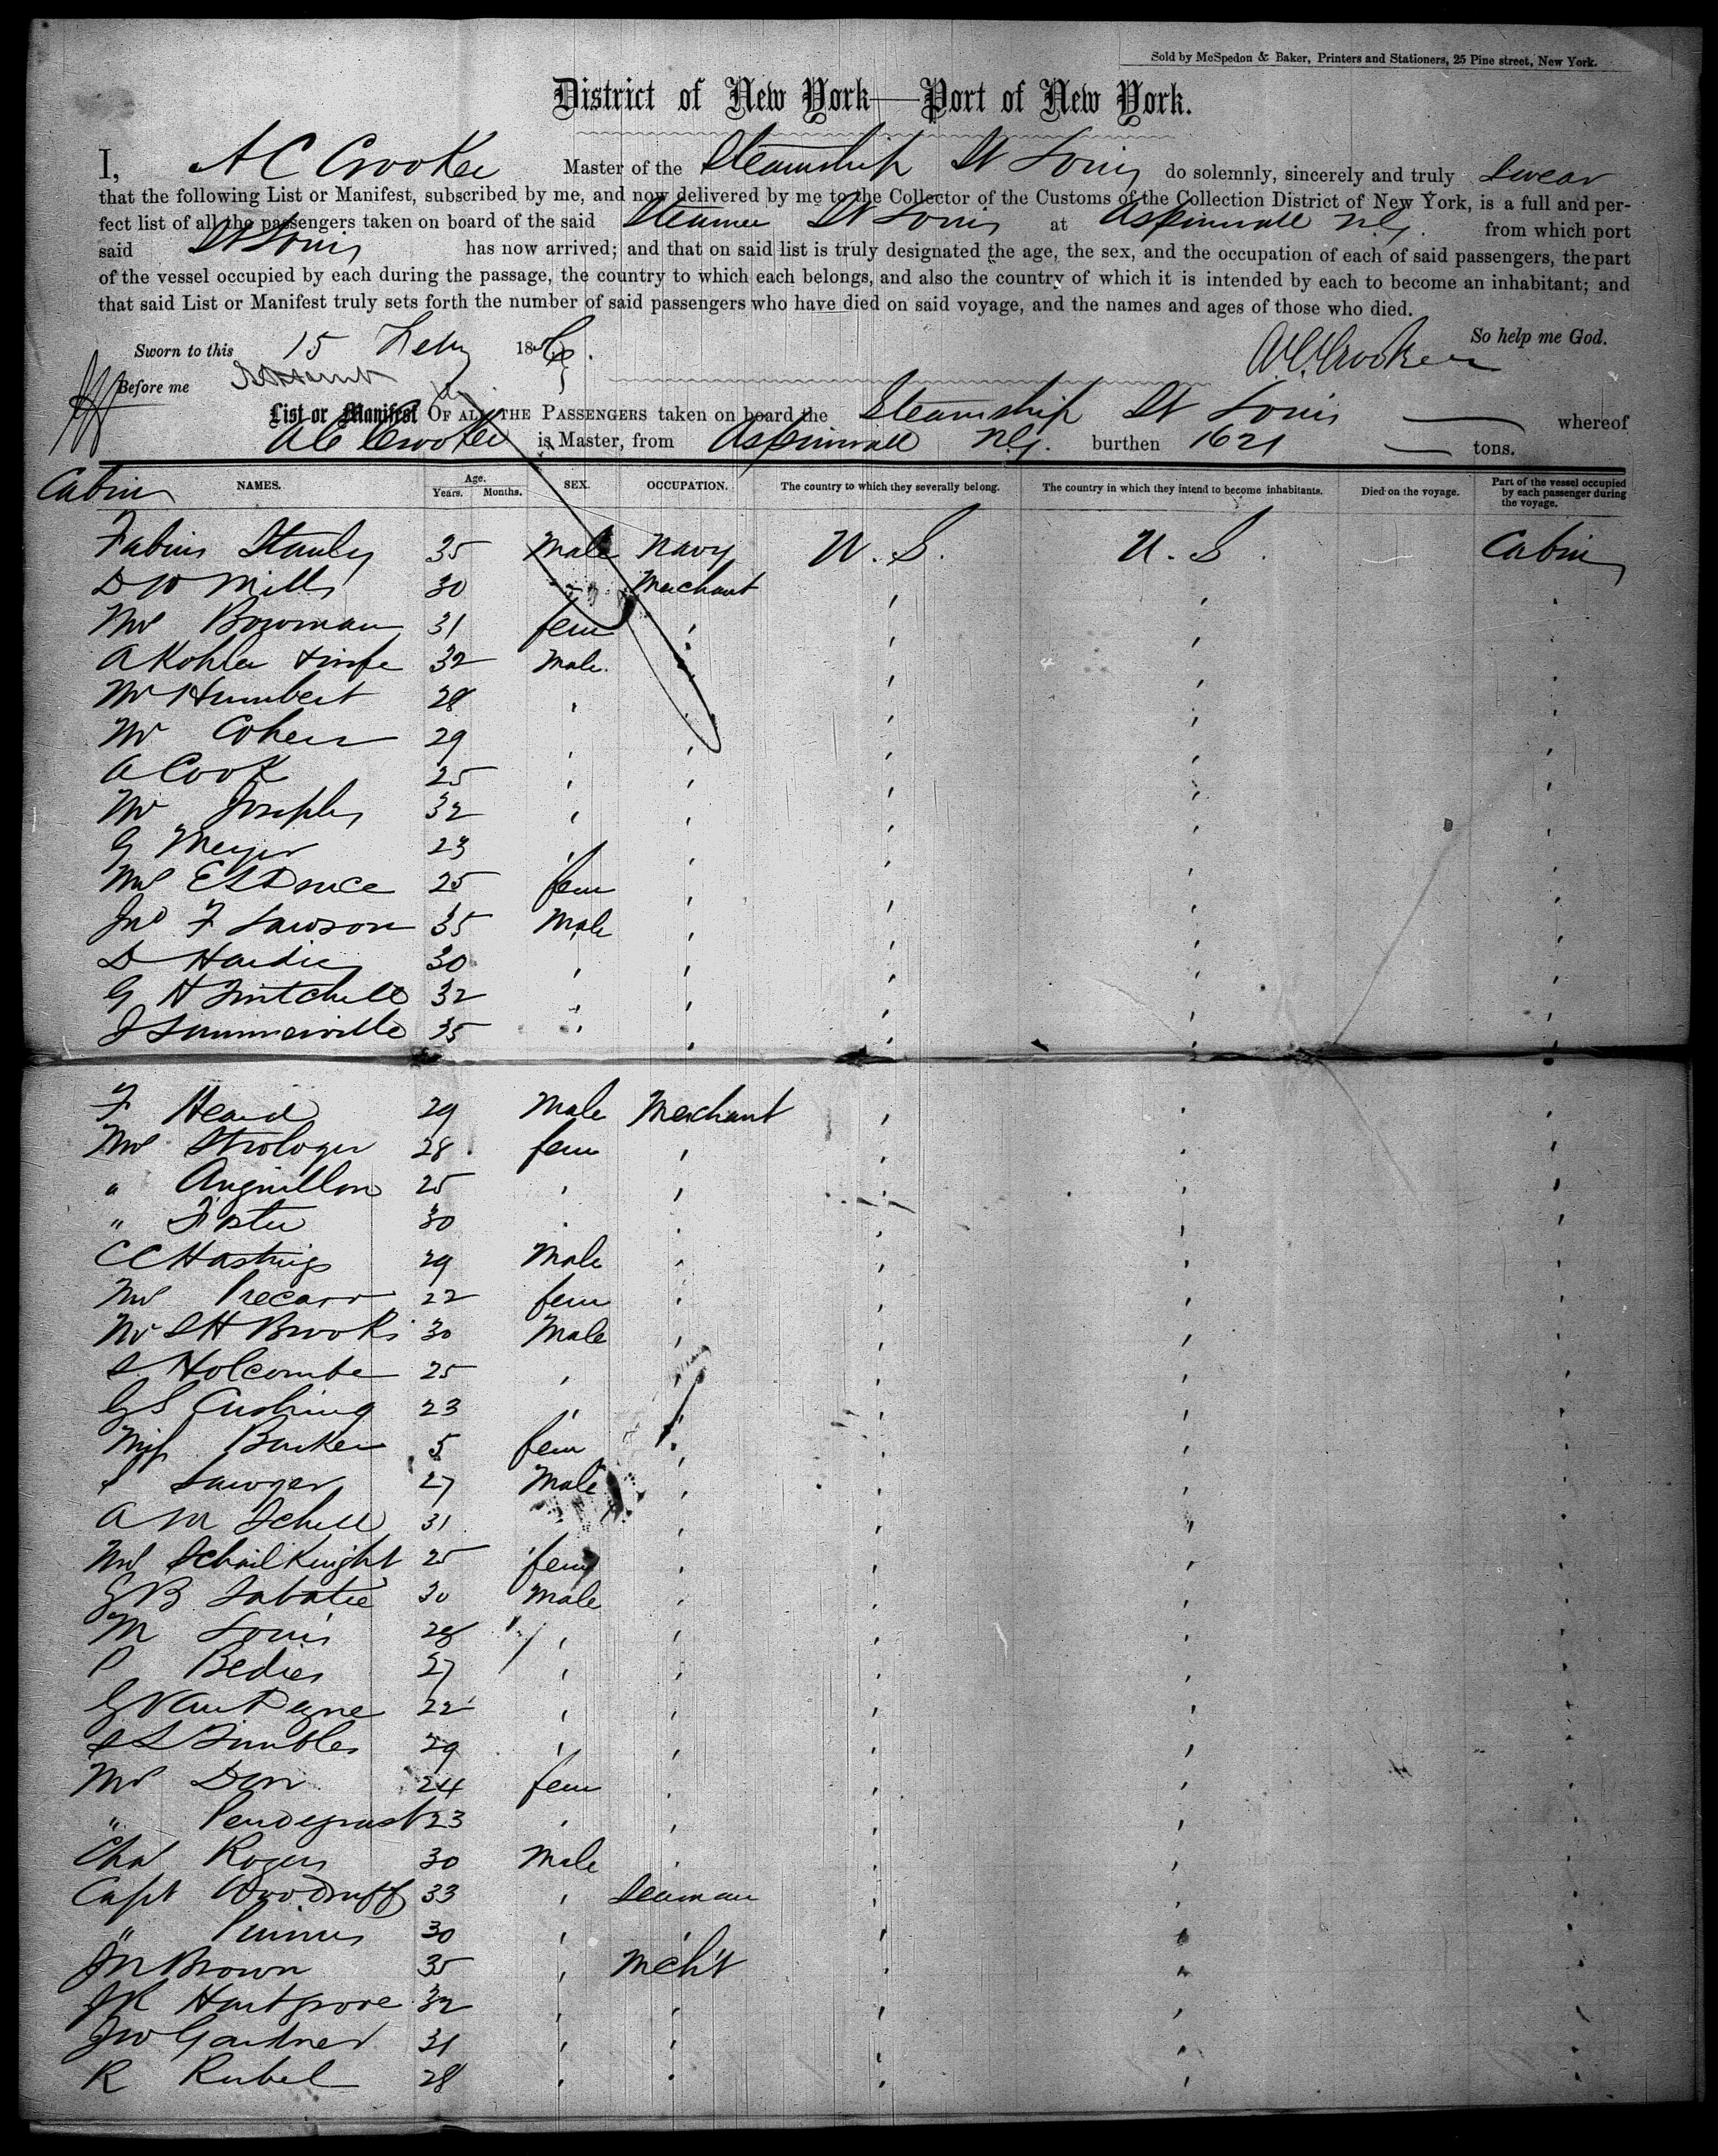 Sold by McSpedon & Baker, Printers and Stationers, 25 Pine street, New York.
District of New York—Port of New York.
I, A C Crooker Master of the Steamship St Louis do solemnly, sincerely and truly swear
that the following List or Manifest, subscribed by me, and now delivered by me to the Collector of the Customs of the Collection District of New York, is a full and per-
fect list of all the passengers taken on board of the said Steamer St Louis at Aspinwall N.G. from which port
said St Louis has now arrived; and that on said list is truly designated the age, the sex, and the occupation of each of said passengers, the part
of the vessel occupied by each during the passage, the country to which each belongs, and also the country of which it is intended by each to become an inhabitant; and
that said List or Manifest truly sets forth the number of said passengers who have died on said voyage, and the names and ages of those who died.
So help me God.
Sworn to this 15 Feby 18
A C Crooker
Before me
List or Manifest OF ALL THE PASSENGERS taken on board the Steamship St Louis whereof
A C Crooker is Master, from Aspinwall N.G. burthen 1621 tons.
Cabin NAMES. Age. Years. Months. SEX. OCCUPATION. The country to which they severally belong. The country in which they intend to become inhabitants. Died on the voyage. Part of the vessel occupied by each passenger during the voyage.
Fabius Stanly 35 Male Navy U. S. U. S. Cabin
D W Mills 30 Merchant
Mrs Bowman 31 fem
A Kohler & wife 32 Male
Mr Humbert 28
Mr Cohen 29
A Cook 25
Mr Josephs 32
G Meyer 23
Mrs 25 fem
Jno F Lawson 35 Male
D Hardie 30
G H Mitchell 32
J Summerville 35
F Heard 29 Male Merchant
Mrs Strologer 28 fem
" Anguillon 25
" Foster 30
C C Hastings 29 Male
Mrs 22 fem
Mr S H Brooks 30 Male
S. Holcombe 25
G S Cushing 23
Miss Barker 5 fem
S Sawyer 27 Male
A M Schell 31
Mrs Knight 25 fem
G B Sabatie 30 Male
M Louis 28
P Bedies 27
G 22
S L Timbles 29
Mrs Dorr 24 fem
" Pendegrast 23
Chas Rogers 30 Male
Capt Woodruff 33 Seaman
" 30
J N Brown 35 Mch't
J R Hartgrove 32
J W Gardner 31
R Rubel 28